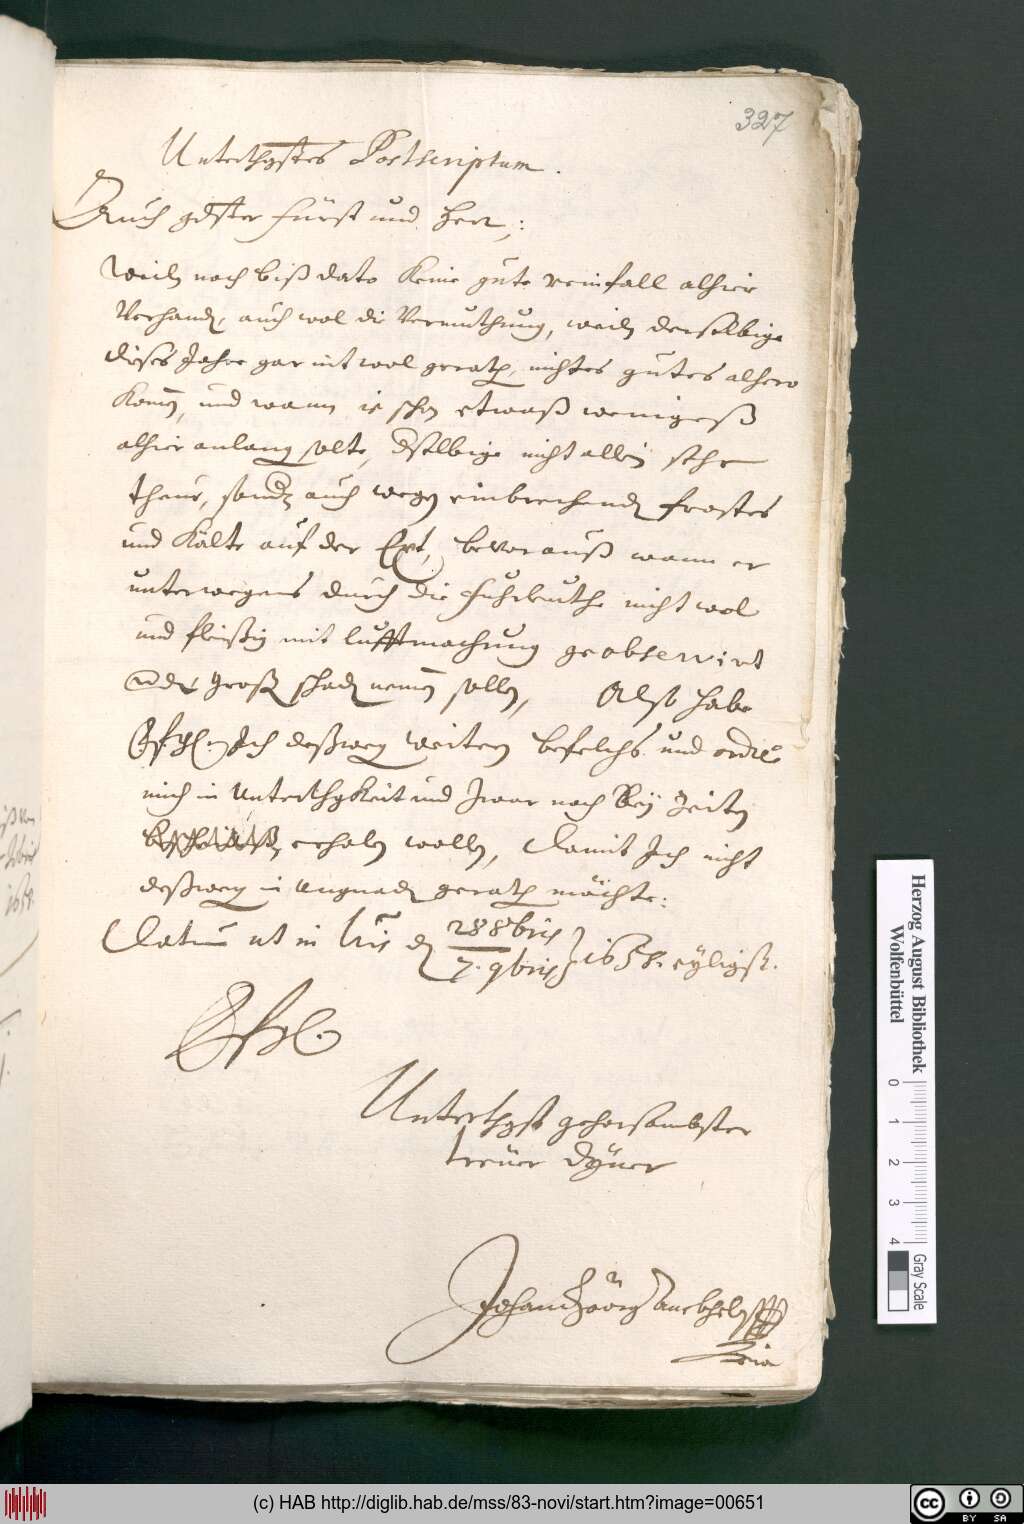 327
Unterthgstes Postscriptum.
Auch gdster Fürst und Herr,:
Weiln noch biß dato keine gute reinfall alhier
Verhandn, auch wol die Vermuthung, weiln derselbige
dieses Jahr gar nit wol gerathn, nichtes gutes alhero
Komen, und wann ie schon etwaß weniges
alhier anlangn solte, dselbige nicht allein sehr
theur, sondn auch wegen einbrechendn frostes
und Kälte auf der Ext, bevorauß wann er
unterwegens durch die Fuhrleuthe nicht wol
und fleißig mit lufftmachung geobservirt
wde großn schadn nemen sollen, Also habe
Ich deßwegn weitern befelchs und ordre
mich in Unterthgkeit und zwar noch Bey Zeitn
erholen wollen, Damit Ich nicht
deßwegn in Ungnadn gerathn möchte:
Datum ut in lris dn 28 8bris
7. 9bris 1658. eyligst.
Unterthgst gehorsambster
treuer Dyner
Johann Geörg
Herzog August Bibliothek
Wolfenbüttel
0 1 2 3 4
Gray Scale
(c) HAB http://diglib.hab.de/mss/83-novi/start.htm?image=00651
cc BY SA